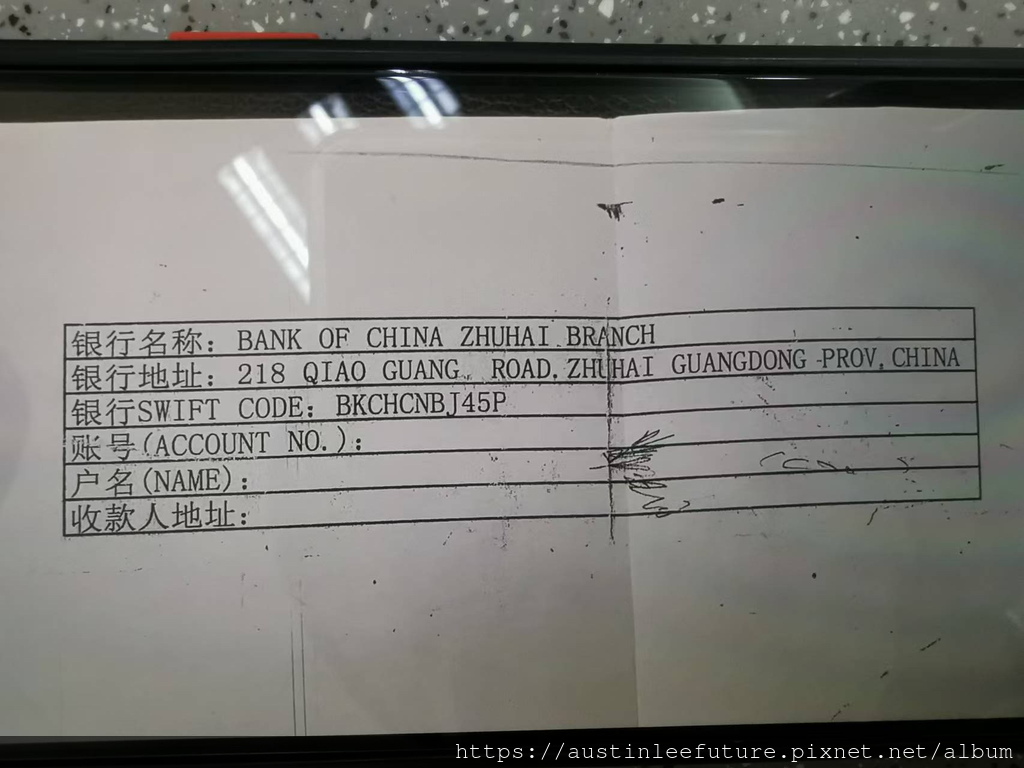 银行名称：BANK OF CHINA ZHUHAI BRANCH
银行地址：218 QIAO GUANG ROAD,ZHUHAI GUANGDONG PROV,CHINA
银行SWIFT CODE：BKCHCNBJ45P
账号(ACCOUNT NO.)：
户名(NAME)：
收款人地址：
https://austinleefuture.pixnet.net/album